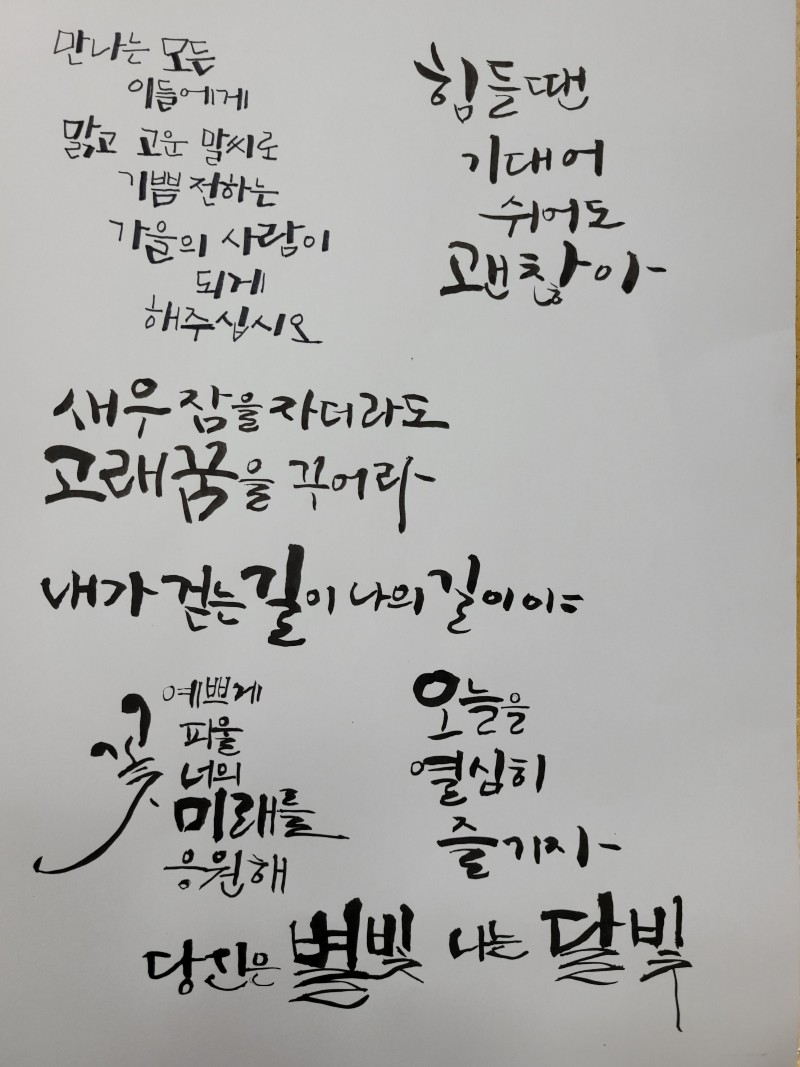 만나는 모든
이들에게
맑고 고운 말씨로
기쁨 전하는
가을의 사람이
되게
해주십시오
힘들땐
기대어
쉬어도
괜찮아
새우잠을 자더라도
고래꿈을 꾸어라
내가 걷는 길이 나의 길이
꽃
예쁘게
피울
너의
미래를
응원해
오늘을
열심히
즐기자
당신은 별빛 나는 달빛